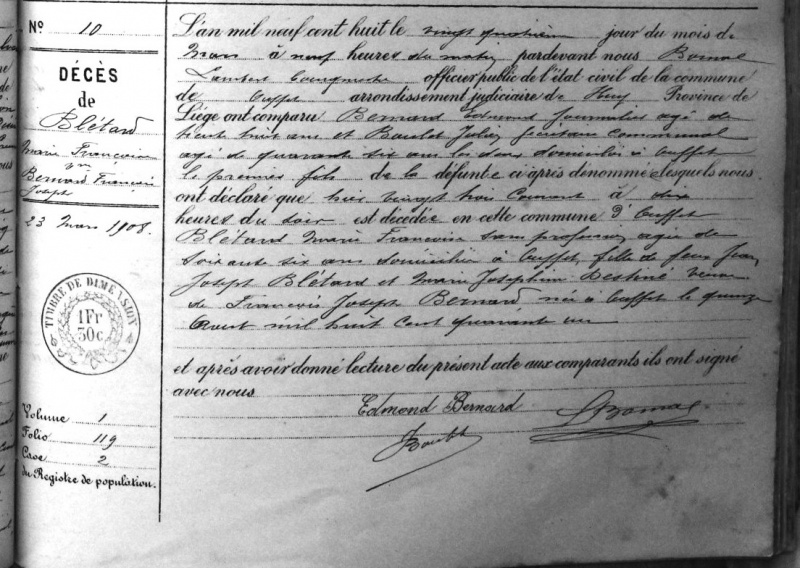 N° 10
DÉCÈS
de
Blétard
Marie Francoise
Vve
Bernard François
Joseph
23 Mars 1908.
TIMBRE DE DIMENSION
1 Fr
50c
Volume 1
Folio 119
Case 2
du Registre de population.
L'an mil neuf cent huit le vingt quatrième jour du mois de
Mars à neuf heures du matin pardevant nous Bornal
Lambert bourgmestre officier public de l'état civil de la commune
de Ouffet arrondissement judiciaire de Huy Province de
Liége ont comparu Bernard Edmond journalier agé de
trente huit ans et Boulet Jules secrétaire communal
agé de quarante six ans les deux domiciliés à Ouffet
le premier fils de la défunte ci après denommée lesquels nous
ont déclaré que hier vingt trois courant à dix
heures du soir est décédée en cette commune d'Ouffet
Blétard Marie Francoise sans profession agée de
soixante six ans domiciliée à Ouffet, fille de feux Jean
Joseph Blétard et Marie Josephine Destiné veuve
de François Joseph Bernard née à Ouffet le quinze
Aout mil huit cent quarante un
et après avoir donné lecture du présent acte aux comparants ils ont signé
avec nous
Edmond Bernard LBornal
JBoulet